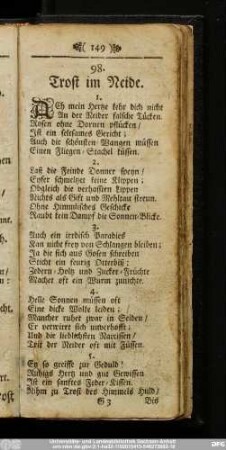 ( 149 )
98.
Trost im Neide.
1.
ACh mein Hertze kehr dich nicht
An der Neider falsche Tücken
Rosen ohne Dornen pflücken/
Ist ein seltsames Gericht;
Auch die schönsten Wangen müssen
Einen Fliegen-Stachel küssen.
2.
Laß die Feinde Donner speyn/
Eyser schmeltzet keine Klippen;
Obgleich die verhasten Lippen
Nichts als Gift und Mehltau streun.
Ohne Himmlisches Geschicke
Raubt kein Dampf die Sonnen-Blicke.
3.
Auch ein irrdisch Paradies
Kan nicht frey von Schlangen bleiben;
Ja die sich aus Gosen schreiben
Sticht ein feurig Otterbiß;
Zedern-Holtz und Zucker-Früchte
Machet oft ein Wurm zunichte.
4.
Helle Sonnen müssen oft
Eine dicke Wolke leiden;
Mancher ruhet zwar in Seiden/
Er verwirret sich unverhofft;
Und die lieblichsten Narcissen/
Trit der Neider oft mit Füssen.
5.
Ey so greiffe zur Geduld!
Ruhigs Hertz und gut Gewissen
Ist ein sanftes Feder-Kissen.
Rühm zu Trost des Himmels Huld/
G 3 Bis